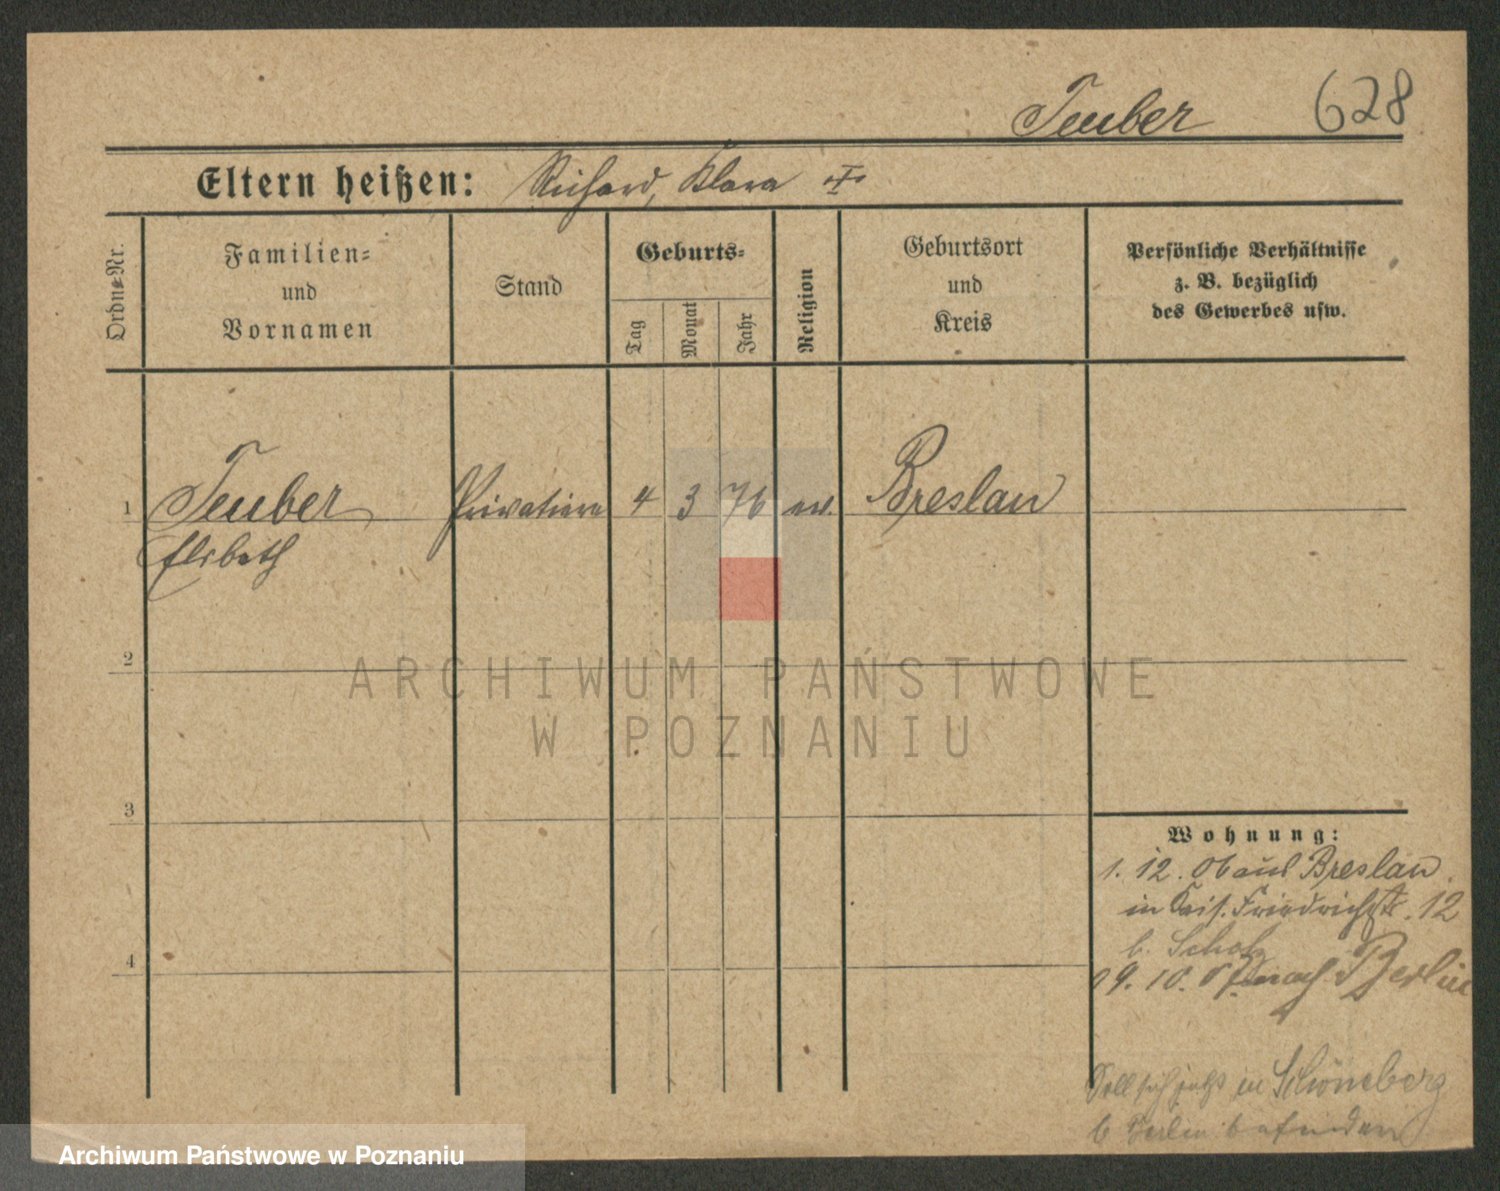 Teuber 628
Eltern heißen: Richard, Klara
Ordn.-Nr.
Familien-
und
Vornamen
Stand
Geburts-
Tag
Monat
Jahr
Religion
Geburtsort
und
Kreis
Persönliche Verhältnisse
z. B. bezüglich
des Gewerbes usw.
1 Teuber Privatiere 4 3 76 ev. Breslau
Elsbeth
2
3
4
Wohnung:
1. 12. 06 aus Breslau.
in Kais. Friedrichstr. 12
b. Scholz
9. 10. 07 nach Berlin
Soll sich jetzt in Schöneberg
b Berlin befinden
ARCHIWUM PAŃSTWOWE
W POZNANIU
Archiwum Państwowe w Poznaniu